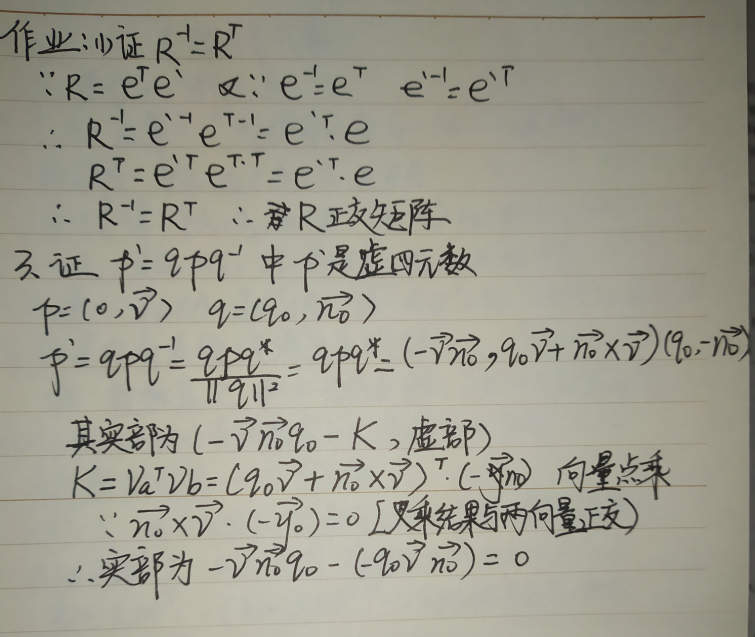 作业:(1)证 R⁻¹=Rᵀ
∵R=eᵀe` 又∵ e⁻¹=eᵀ e`⁻¹=e`ᵀ
∴ R⁻¹=e`⁻¹eᵀ⁻¹=e`ᵀ·e
Rᵀ=e`ᵀeᵀ·ᵀ=e`ᵀ·e
∴ R⁻¹=Rᵀ ∴ R正交矩阵
3、证 p`=qpq⁻¹ 中p`是虚四元数
p=(0,v⃗) q=(q₀,n₀⃗)
p`=qpq⁻¹=qpq*/||q||²=qpq*=(-v⃗n₀⃗,q₀v⃗+n₀⃗×v⃗)(q₀,-n₀⃗)
其实部为(-v⃗n₀⃗q₀-K,虚部)
K=VaᵀVb=(q₀v⃗+n₀⃗×v⃗)ᵀ·(-n₀⃗) 向量点乘
∵n₀⃗×v⃗·(-η₀⃗)=0[叉乘结果与两向量正交)
∴实部为-v⃗n₀⃗q₀-(-q₀v⃗n₀⃗)=0